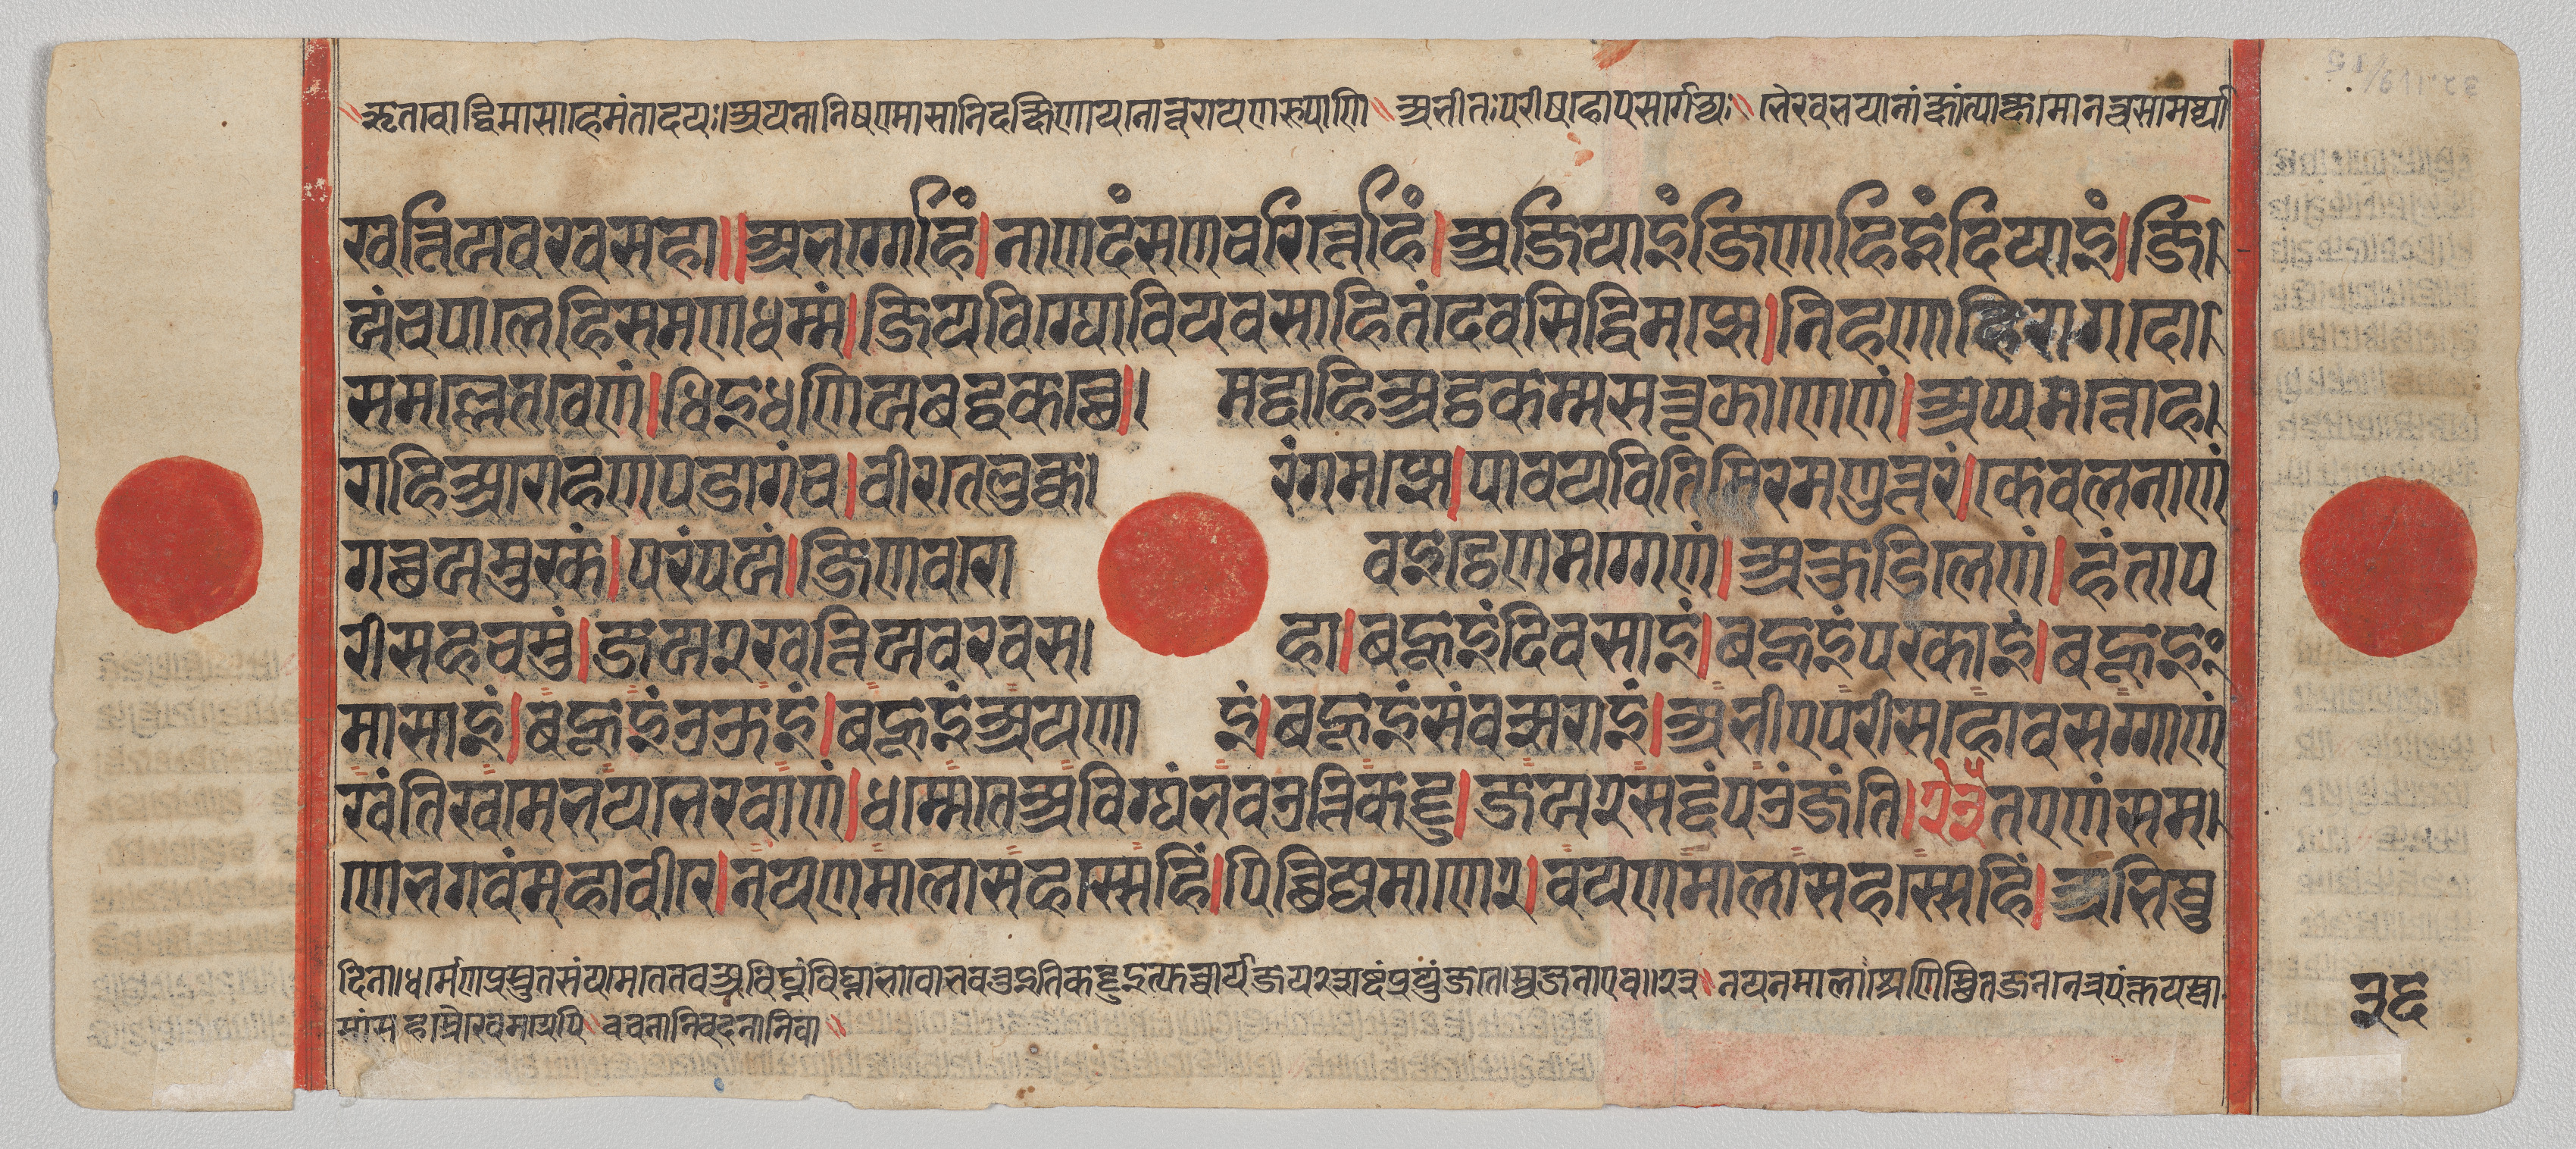 ऋतवो द्विमासा हेमंतादयः। अयनानि षण्मासानि दक्षिणायनोत्तरायणरूपाणि॥ अभीतः परीषहोपसर्गेभ्यः॥ भैरवभयानां क्षांत्या क्षमो न त्वसामर्थ्या
खत्तियवरवसहा॥ अभग्गेहिं। नाणदंसणचरित्तेहिं। अजियाइं जिणाहि इंदियाइं। जि
यं च पालेहि समणधम्मं। जियविग्घो वि य वसाहि तं देव सिद्धिमज्झे। निहणाहि रागदो
समल्ले तवेणं। धिइधणियबद्धकच्छे। मद्दाहि अट्ठकम्मसत्तू झाणेणं। अप्पमत्तो ह
राहि आराहणपडागं च। वीर तेलुक्क रंगमज्झे। पाव य वितिमिरमणुत्तरं। केवलनाणं
गच्छ य मुक्खं। परं पयं। जिणवरो वइट्ठेण मग्गेणं। अकुडिलेणं। हंता प
रीसहचमुं। जय २ खत्तियवरवस हा। बहूइं दिवसाइं। बहूइं पक्खाइं। बहूइं
मासाइं। बहूइं उऊइं। बहूइं अयणा इं। बहूइं संवच्छराइं। अभीए परीसहोवसग्गाणं
खंतिखमे भयभेरवाणं। धम्मे ते अविग्घं भवउ त्ति कट्टु। जय २ सद्दं पउंजंति। १३ तए णं सम
णे भगवं महावीरे। नयणमालासहस्सेहिं। पिच्छिज्जमाणे २। वयणमालासहस्सेहिं। अभिथु
दिना। धर्मे प्रस्तुतसंयमे ते तव अविघ्नं विघ्नाभावो भवतु इति कट्टु इत्युच्चार्य जय २ शब्दं प्रयुंजते स्वजना एव॥१३ नयनमाला श्रेणिस्थितजन
वचनानि वदनानि वा॥
३६